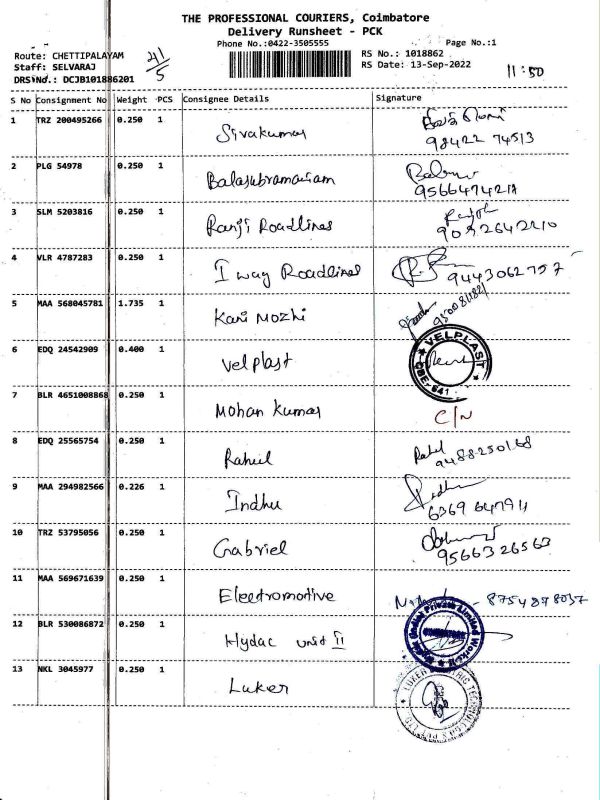 THE PROFESSIONAL COURIERS, Coimbatore
Delivery Runsheet - PCK
Phone No.:0422-3505555 Page No.:1
Route: CHETTIPALAYAM 41/5 RS No.: 1018862
Staff: SELVARAJ RS Date: 13-Sep-2022
DRS No.: DCJB101886201 11:50
S No Consignment No Weight PCS Consignee Details Signature
1 TRZ 200495266 0.250 1 Sivakumar
98422 74513
2 PLG 54978 0.250 1 Balasubramaniam
9566474214
3 SLM 5203816 0.250 1 Ranji Roadlines
9092642210
4 VLR 4787283 0.250 1 I way Roadlines 9443062757
5 MAA 568045781 1.735 1 Kani Mozhi
6 EDQ 24542909 0.400 1 Velplast VELPLAST CBE-641
7 BLR 4651008868 0.250 1 Mohan Kumar C/N
8 EDQ 25565754 0.250 1 Rahul Rahul
9488250168
9 MAA 294982566 0.226 1 Indhu
6369 647911
10 TRZ 53795056 0.250 1 Gabriel
9566326563
11 MAA 569671639 0.250 1 Electromotive 8754878037
12 BLR 530086872 0.250 1 Hydac unit II Hydac (India) Private Limited
13 NKL 3045977 0.250 1 Luker LUKER ELECTRIC TECHNOLOGIES PVT LTD